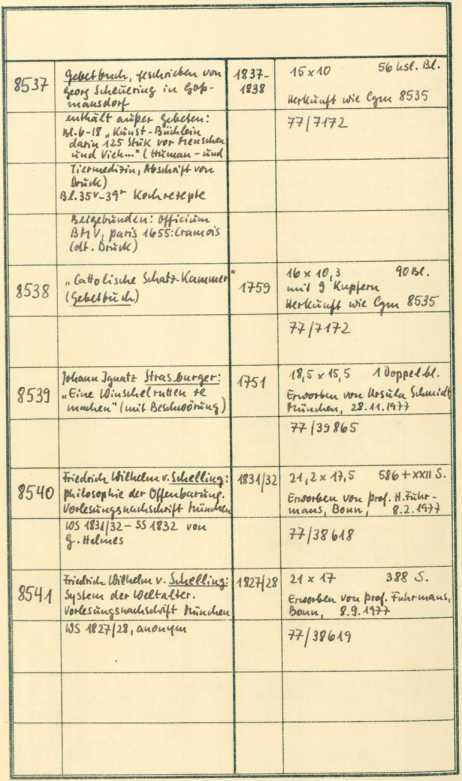 8537
Gebetbuch, geschrieben von
Georg Scheuering in Goß-
mansdorf
enthält außer Gebeten:
Bl. 6-18 „Kunst-Büchlein
darin 125 Stük vor Menschen
und Vieh..." (Human- und
Tiermedizin, Abschrift von
Druck)
Bl. 35v-39r Kochrezepte
Beigebunden: Officium
BMV, Paris 1655: Cramois
(dt. Druck)
1837-
1838
15 x 10 56 hsl. Bl.
Herkunft wie Cgm 8535
77/7172
8538
„Catholische Schatz-Kammer"
(Gebetbuch)
1759
16 x 10,3 90 Bl.
mit 9 Kupfern
Herkunft wie Cgm 8535
77/7172
8539
Johann Ignatz Strasburger:
„Eine Winschelrutten ze
machen" (mit Beschwörung)
1751
18,5 x 15,5 1 Doppelbl.
Erworben von Ursula Schmidt
München, 28.11.1977
77/39865
8540
Friedrich Wilhelm v. Schelling:
Philosophie der Offenbarung.
Vorlesungsnachschrift München
WS 1831/32 - SS 1832 von
G. Helmes
1831/32
21,2 x 17,5 586 + XXII S.
Erworben von Prof. H. Fuhr-
mans, Bonn, 8.2.1977
77/38618
8541
Friedrich Wilhelm v. Schelling:
System der Weltalter.
Vorlesungsnachschrift München
WS 1827/28, anonym
1827/28
21 x 17 388 S.
Erworben von Prof. Fuhrmans,
Bonn, 8.9.1977
77/38619